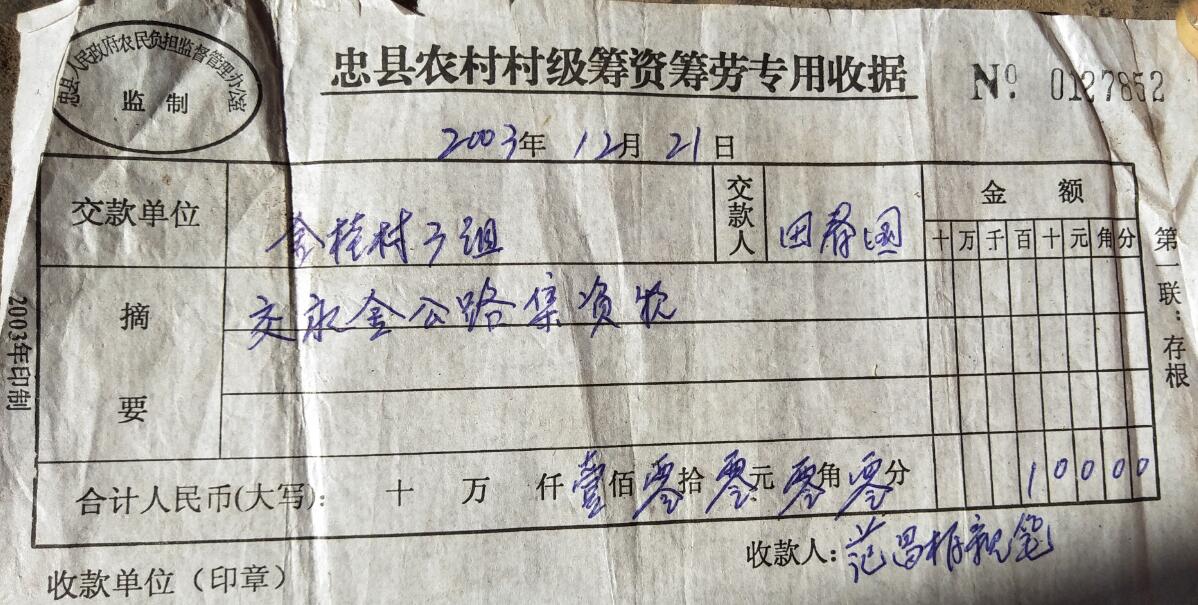 忠县人民政府农民负担监督管理办公室
监制
忠县农村村级筹资筹劳专用收据
№ 0127852
2003年 12月 21日
交款单位
金桂村子组
交款人
田春国
金 额
十万千百十元角分
摘要
交永金公路集资款
合计人民币(大写): 十 万 仟壹佰零拾零元零角零分
10000
收款人:范昌福亲笔
收款单位(印章)
第一联:存根
2003年印制